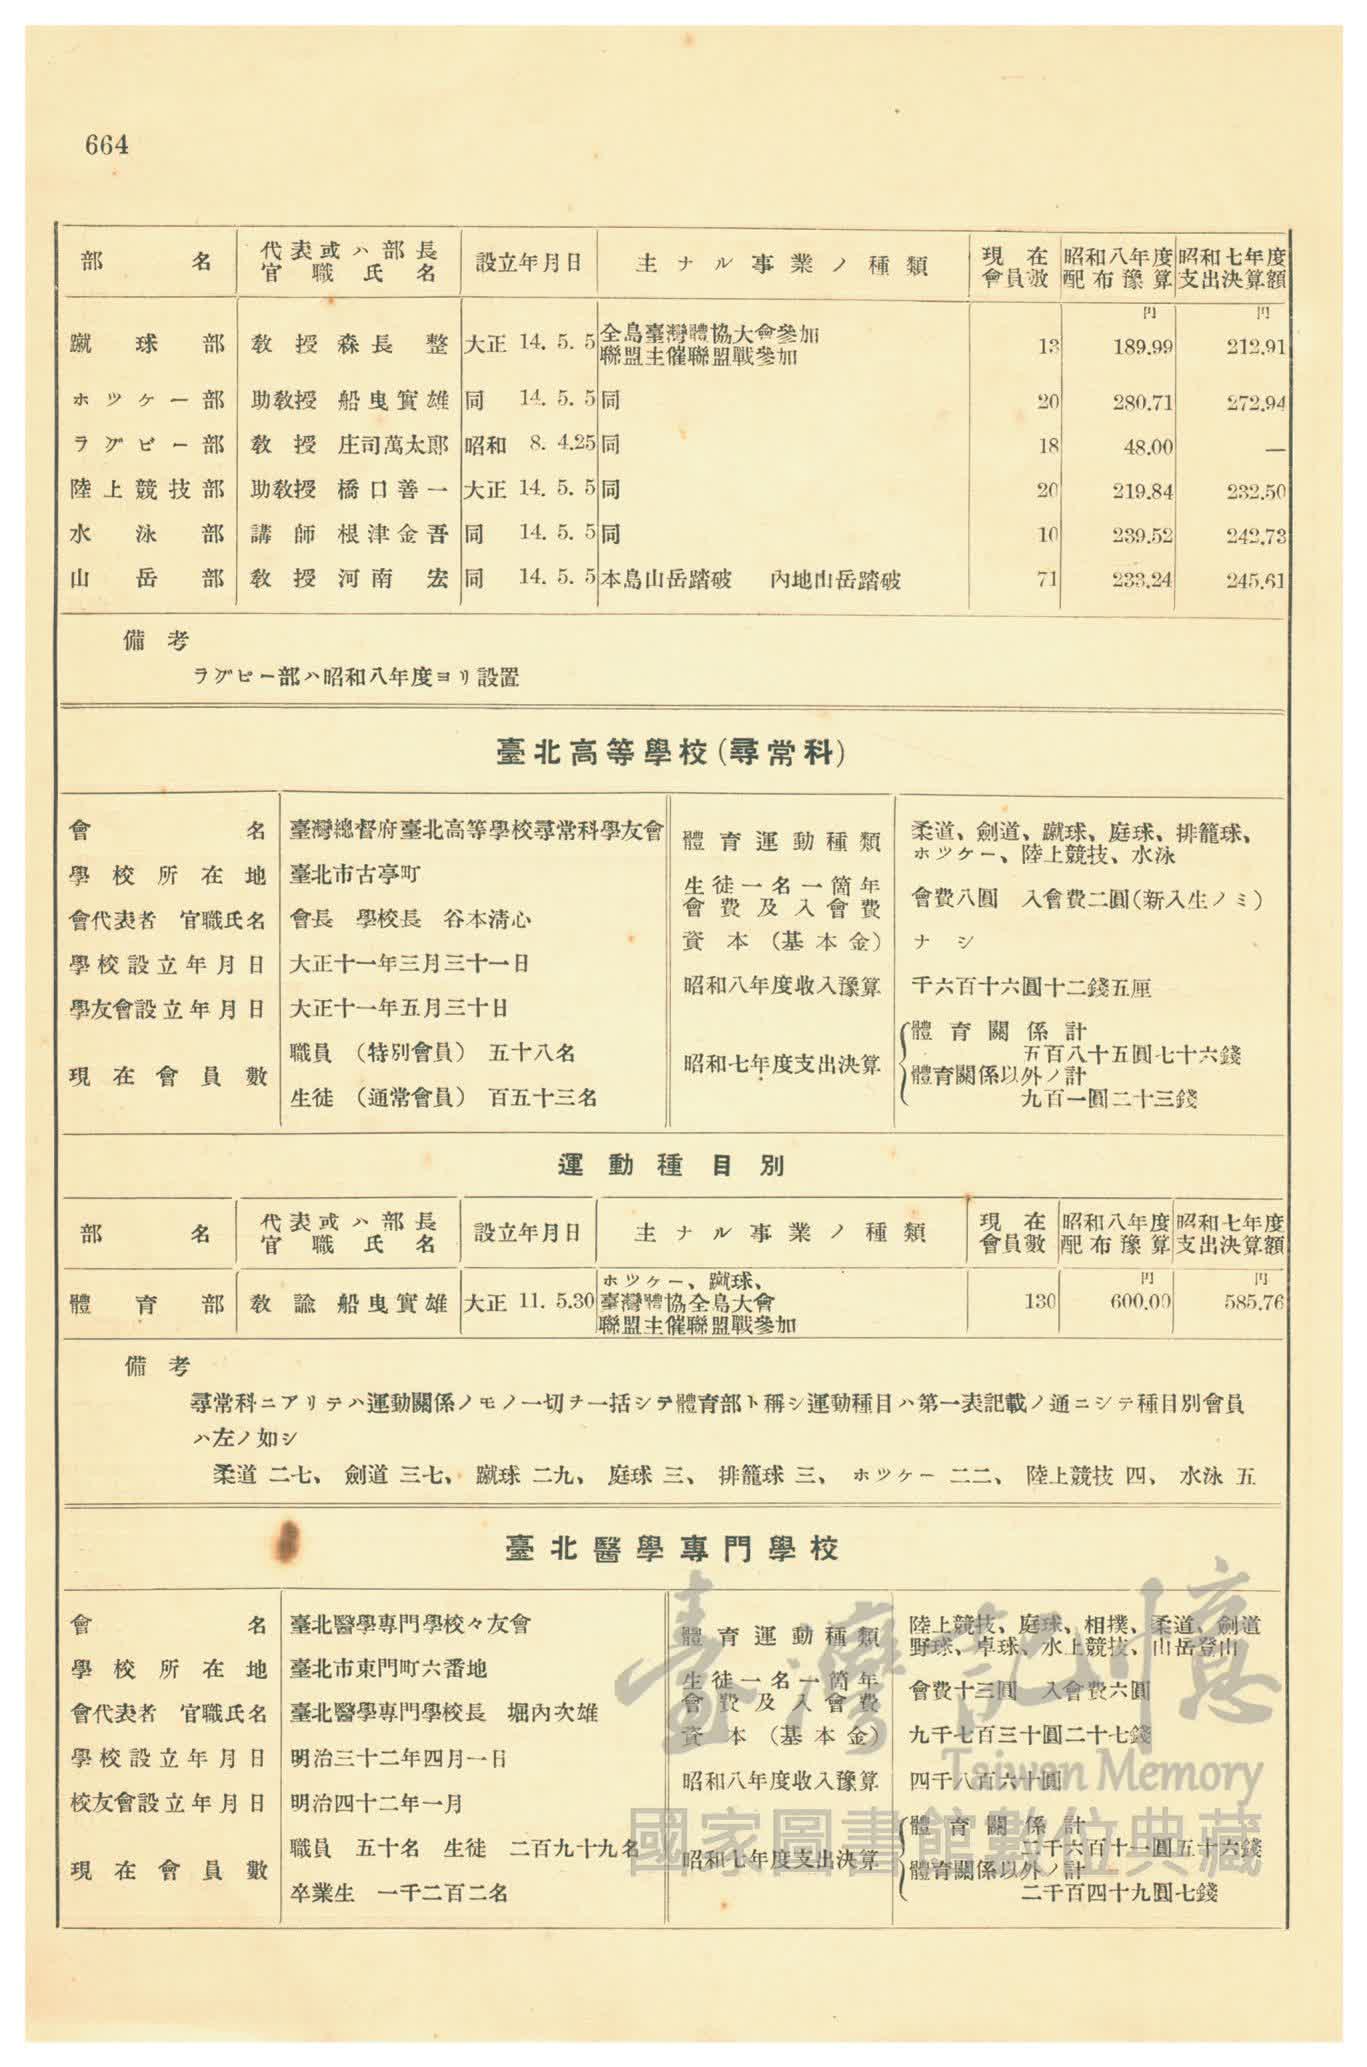 664
部名 代表或ハ部長官職氏名 設立年月日 主ナル事業ノ種類 現在會員數 昭和八年度配布豫算 昭和七年度支出決算額
円 円
蹴球部 教授 森長整 大正 14. 5. 5 全島臺灣體協大會參加 聯盟主催聯盟戰參加 13 189.99 212.91
ホツケー部 助教授 船曳實雄 同 14. 5. 5 同 20 280.71 272.94
ラグビー部 教授 庄司萬太郎 昭和 8. 4.25 同 18 48.00 —
陸上競技部 助教授 橋口善一 大正 14. 5. 5 同 20 219.84 232.50
水泳部 講師 根津金吾 同 14. 5. 5 同 10 239.52 242.73
山岳部 教授 河南宏 同 14. 5. 5 本島山岳踏破 內地山岳踏破 71 233.24 245.61
備考
ラグビー部ハ昭和八年度ヨリ設置
臺北高等學校(尋常科)
會名 臺灣總督府臺北高等學校尋常科學友會
學校所在地 臺北市古亭町
會代表者 官職氏名 會長 學校長 谷本淸心
學校設立年月日 大正十一年三月三十一日
學友會設立年月日 大正十一年五月三十日
現在會員數 職員 (特別會員) 五十八名
生徒 (通常會員) 百五十三名
體育運動種類 柔道、劍道、蹴球、庭球、排籠球、
ホツケー、陸上競技、水泳
生徒一名一箇年會費及入會費 會費八圓 入會費二圓(新入生ノミ)
資本(基本金) ナシ
昭和八年度收入豫算 千六百十六圓十二錢五厘
昭和七年度支出決算 體育關係計
五百八十五圓七十六錢
體育關係以外ノ計
九百一圓二十三錢
運動種目別
部名 代表或ハ部長官職氏名 設立年月日 主ナル事業ノ種類 現在會員數 昭和八年度配布豫算 昭和七年度支出決算額
円 円
體育部 教諭 船曳實雄 大正 11. 5.30 ホツケー、蹴球、臺灣體協全島大會 聯盟主催聯盟戰參加 130 600.00 585.76
備考
尋常科ニアリテハ運動關係ノモノ一切ヲ一括シテ體育部ト稱シ運動種目ハ第一表記載ノ通ニシテ種目別會員
ハ左ノ如シ
柔道 二七、 劍道 三七、 蹴球 二九、 庭球 三、 排籠球 三、 ホツケー 二二、 陸上競技 四、 水泳 五
臺北醫學專門學校
會名 臺北醫學專門學校々友會
學校所在地 臺北市東門町六番地
會代表者 官職氏名 臺北醫學專門學校長 堀內次雄
學校設立年月日 明治三十二年四月一日
校友會設立年月日 明治四十二年一月
現在會員數 職員 五十名 生徒 二百九十九名
卒業生 一千二百二名
體育運動種類 陸上競技、庭球、相撲、柔道、劍道
野球、卓球、水上競技、山岳登山
生徒一名一箇年會費及入會費 會費十三圓 入會費六圓
資本(基本金) 九千七百三十圓二十七錢
昭和八年度收入豫算 四千八百六十圓
昭和七年度支出決算 體育關係計
二千六百十一圓五十六錢
體育關係以外ノ計
二千百四十九圓七錢
臺灣記憶
Taiwan Memory
國家圖書館數位典藏